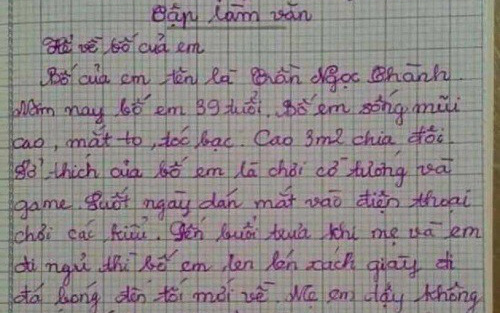 Tập làm văn
Tả về bố của em
Bố của em tên là Trần Ngọc Thành.
Năm nay bố em 39 tuổi. Bố em sống mũi
cao, mắt to, tóc bạc. Cao 3m2 chia đôi.
Sở thích của bố em là chơi cờ tướng và
game. Suốt ngày dán mắt vào điện thoại
chơi các kiểu. Đến buổi trưa khi mẹ và em
đi ngủ thì bố em len lén xách giày đi
đá bóng đến tối mới về. Mẹ em dậy không